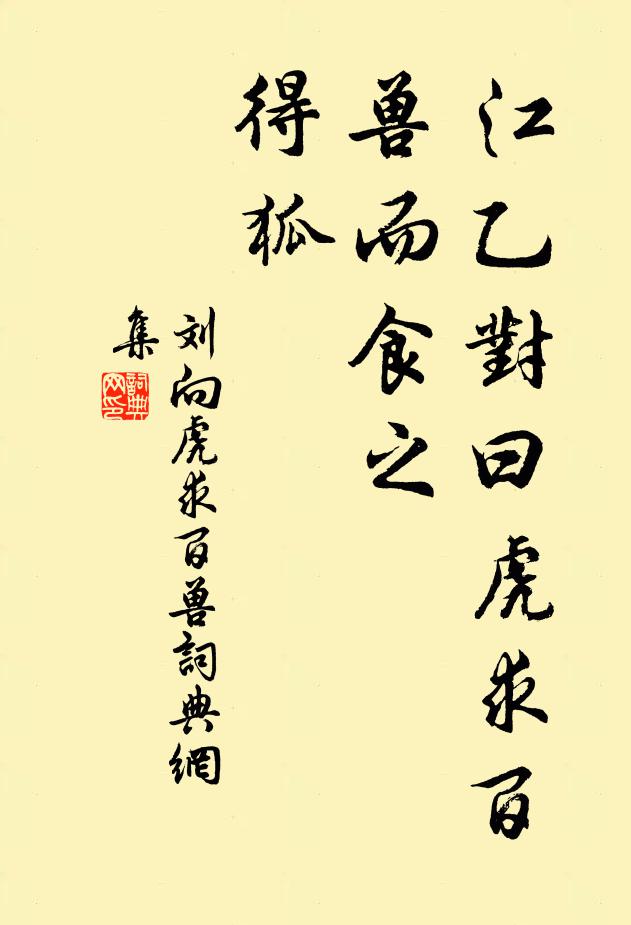 江乙對曰虎求百
兽而食之
得狐
刘向虎求百兽詞典網
集
詞典
网印